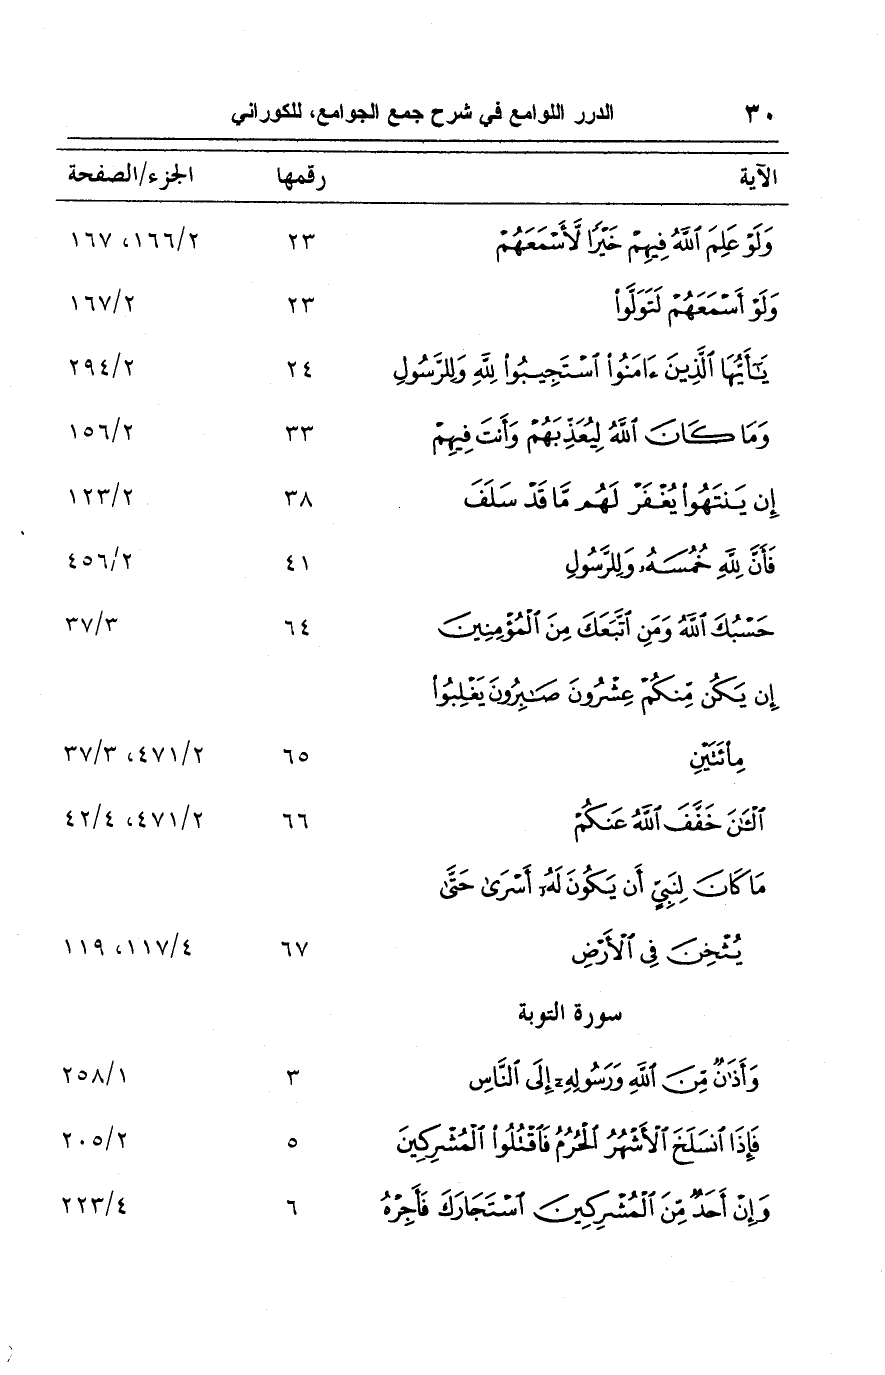 ٣٠ الدرر اللوامع في شرح جمع الجوامع، للكوراني
الآية رقمها الجزء/الصفحة
وَلَوْ عَلِمَ ٱللَّهُ فِيهِمْ خَيْرًا لَّأَسْمَعَهُمْ ٢٣ ١٦٦/٢، ١٦٧
وَلَوْ أَسْمَعَهُمْ لَتَوَلَّوا۟ ٢٣ ١٦٧/٢
يَـٰٓأَيُّهَا ٱلَّذِينَ ءَامَنُوا۟ ٱسْتَجِيبُوا۟ لِلَّهِ وَلِلرَّسُولِ ٢٤ ٢٩٤/٢
وَمَا كَانَ ٱللَّهُ لِيُعَذِّبَهُمْ وَأَنتَ فِيهِمْ ٣٣ ١٥٦/٢
إِن يَنتَهُوا۟ يُغْفَرْ لَهُم مَّا قَدْ سَلَفَ ٣٨ ١٢٣/٢
فَأَنَّ لِلَّهِ خُمُسَهُۥ وَلِلرَّسُولِ ٤١ ٤٥٦/٢
حَسْبُكَ ٱللَّهُ وَمَنِ ٱتَّبَعَكَ مِنَ ٱلْمُؤْمِنِينَ ٦٤ ٣٧/٣
إِن يَكُن مِّنكُمْ عِشْرُونَ صَـٰبِرُونَ يَغْلِبُوا۟
مِا۟ئَتَيْنِ ٦٥ ٤٧١/٢، ٣٧/٣
ٱلْـَٔـٰنَ خَفَّفَ ٱللَّهُ عَنكُمْ ٦٦ ٤٧١/٢، ٤٢/٤
مَا كَانَ لِنَبِىٍّ أَن يَكُونَ لَهُۥٓ أَسْرَىٰ حَتَّىٰ
يُثْخِنَ فِى ٱلْأَرْضِ ٦٧ ١١٧/٤، ١١٩
سورة التوبة
وَأَذَٰنٌ مِّنَ ٱللَّهِ وَرَسُولِهِۦٓ إِلَى ٱلنَّاسِ ٣ ٢٥٨/١
فَإِذَا ٱنسَلَخَ ٱلْأَشْهُرُ ٱلْحُرُمُ فَٱقْتُلُوا۟ ٱلْمُشْرِكِينَ ٥ ٢٠٥/٢
وَإِنْ أَحَدٌ مِّنَ ٱلْمُشْرِكِينَ ٱسْتَجَارَكَ فَأَجِرْهُ ٦ ٢٢٣/٤